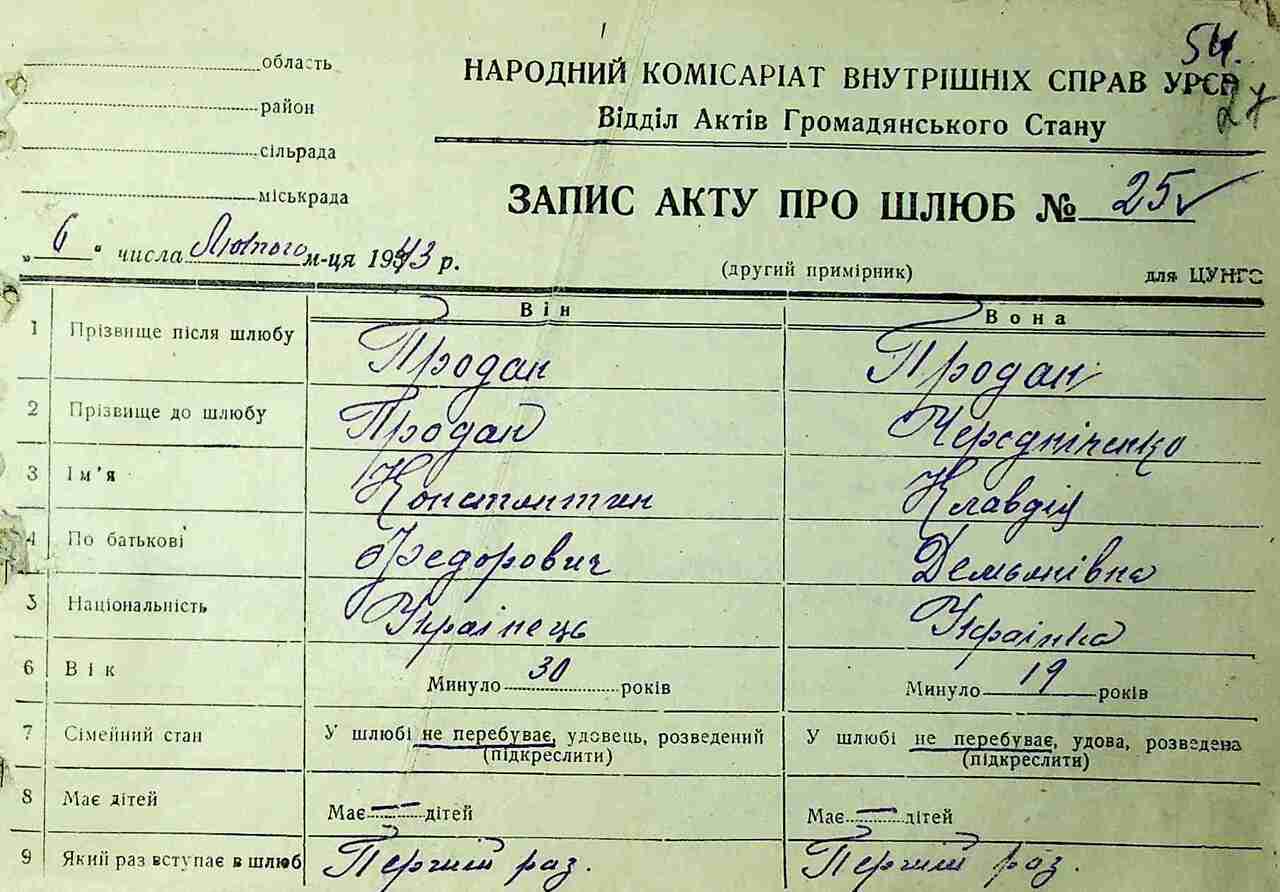 54.
27
область
район
сільрада
міськрада
НАРОДНИЙ КОМІСАРІАТ ВНУТРІШНІХ СПРАВ УРСР
Відділ Актів Громадянського Стану
ЗАПИС АКТУ ПРО ШЛЮБ № 25
„ 6 “ числа Лютого м-ця 1943 р.
(другий примірник) для ЦУНГО
Він Вона
1 Прізвище після шлюбу Продан Продан
2 Прізвище до шлюбу Продан Чередніченко
3 Ім'я Константин Клавдія
4 По батькові Федорович Демьянівна
5 Національність Українець Українка
6 Вік Минуло 30 років Минуло 19 років
7 Сімейний стан У шлюбі не перебуває, удовець, розведений У шлюбі не перебуває, удова, розведена
(підкреслити) (підкреслити)
8 Має дітей Має — дітей Має — дітей
9 Який раз вступає в шлюб Перший раз. Перший раз.